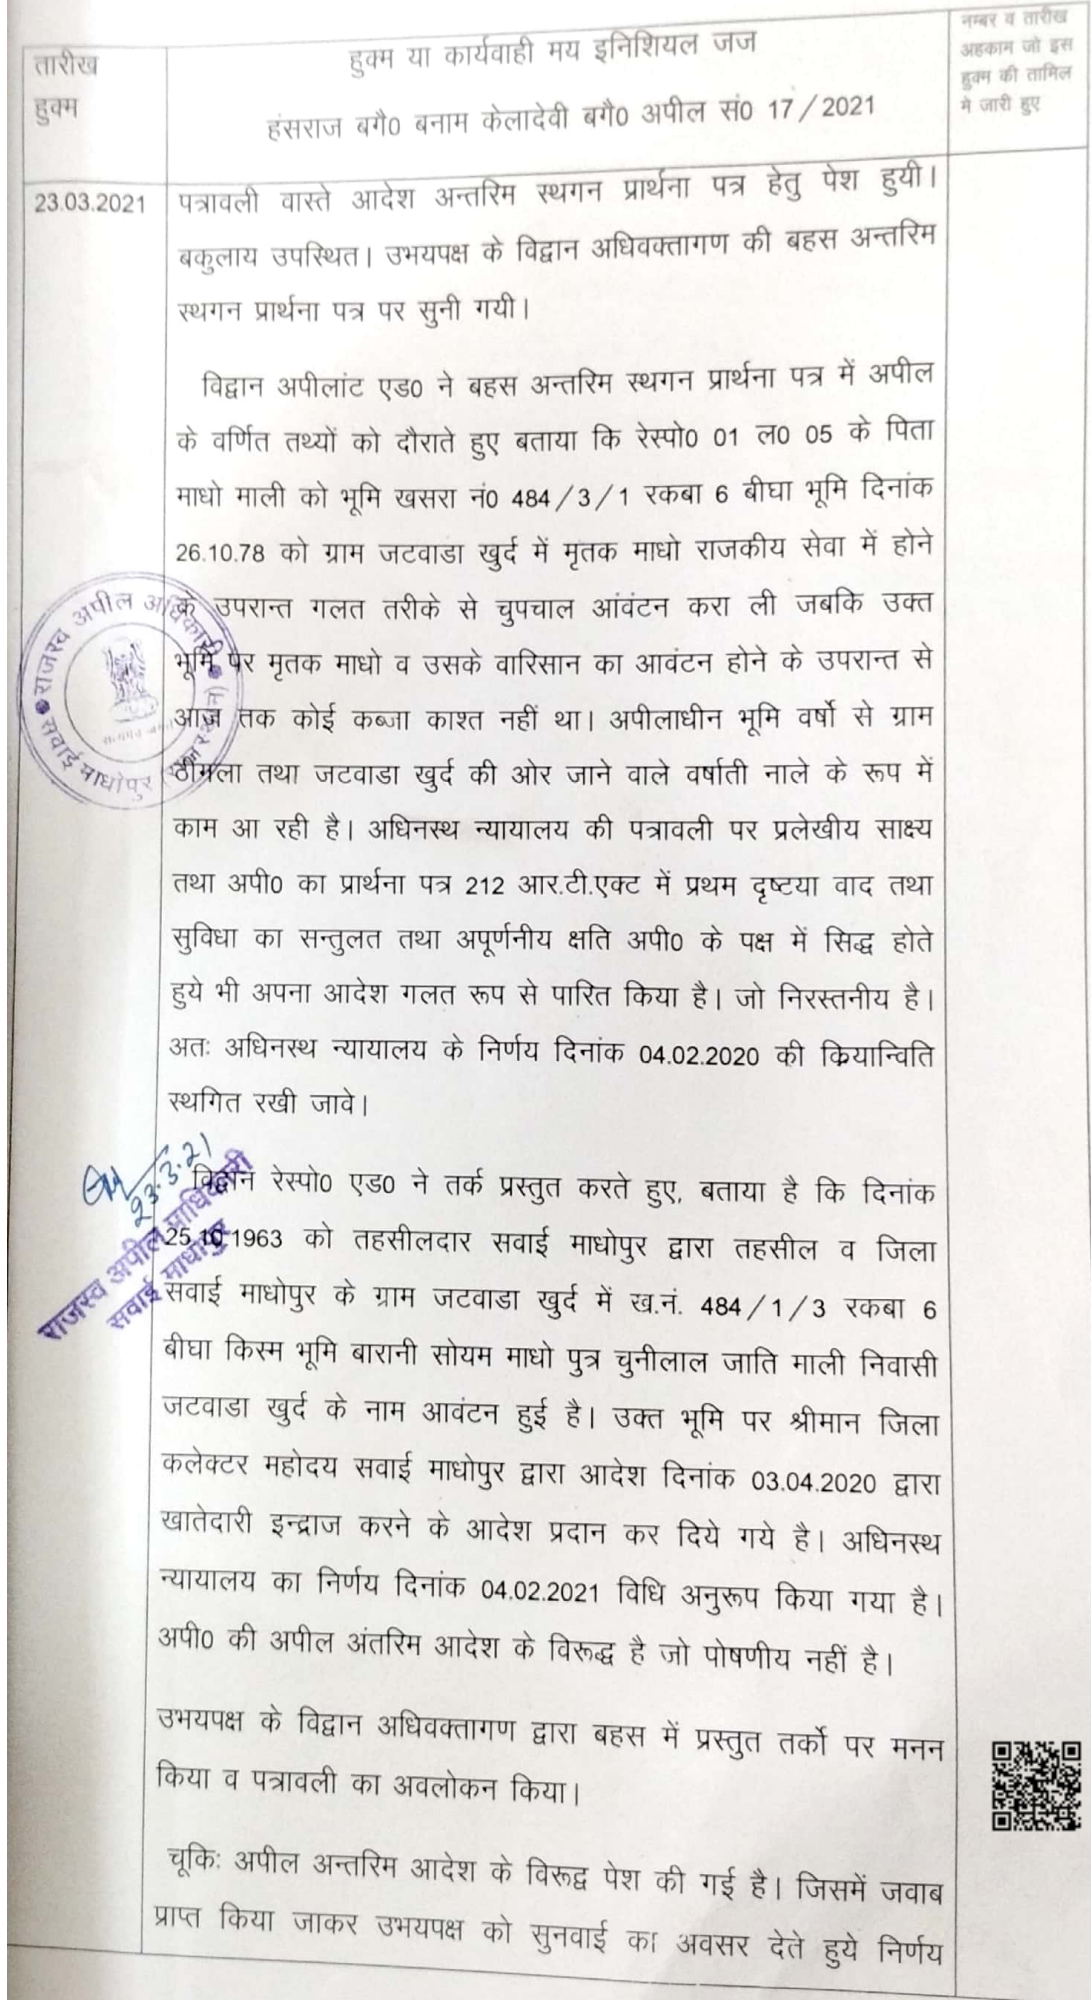 तारीख हुक्म
हुक्म या कार्यवाही मय इनिशियल जज
हंसराज बगै० बनाम केलादेवी बगै० अपील सं० 17/2021
नम्बर व तारीख
अहकाम जो इस
हुक्म की तामिल
मे जारी हुए
23.03.2021
पत्रावली वास्ते आदेश अन्तरिम स्थगन प्रार्थना पत्र हेतु पेश हुयी।
बकुलाय उपस्थित। उभयपक्ष के विद्वान अधिवक्तागण की बहस अन्तरिम
स्थगन प्रार्थना पत्र पर सुनी गयी।
विद्वान अपीलांट एड० ने बहस अन्तरिम स्थगन प्रार्थना पत्र में अपील
के वर्णित तथ्यों को दौराते हुए बताया कि रेस्पो० 01 ल० 05 के पिता
माधो माली को भूमि खसरा नं० 484/3/1 रकबा 6 बीघा भूमि दिनांक
26.10.78 को ग्राम जटवाडा खुर्द में मृतक माधो राजकीय सेवा में होने
के उपरान्त गलत तरीके से चुपचाल आंवंटन करा ली जबकि उक्त
भूमि पर मृतक माधो व उसके वारिसान का आवंटन होने के उपरान्त से
आज तक कोई कब्जा काश्त नहीं था। अपीलाधीन भूमि वर्षो से ग्राम
ठींगला तथा जटवाडा खुर्द की ओर जाने वाले वर्षाती नाले के रूप में
काम आ रही है। अधिनस्थ न्यायालय की पत्रावली पर प्रलेखीय साक्ष्य
तथा अपी० का प्रार्थना पत्र 212 आर.टी.एक्ट में प्रथम दृष्टया वाद तथा
सुविधा का सन्तुलत तथा अपूर्णनीय क्षति अपी० के पक्ष में सिद्ध होते
हुये भी अपना आदेश गलत रूप से पारित किया है। जो निरस्तनीय है।
अतः अधिनस्थ न्यायालय के निर्णय दिनांक 04.02.2020 की कियान्विति
स्थगित रखी जावे।
राजस्व अपील अधिकारी
सवाई माधोपुर (राजस्थान)
23.3.21
राजस्व अपील प्राधिकारी
सवाई माधोपुर
विद्वान रेस्पो० एड० ने तर्क प्रस्तुत करते हुए, बताया है कि दिनांक
25.10.1963 को तहसीलदार सवाई माधोपुर द्वारा तहसील व जिला
सवाई माधोपुर के ग्राम जटवाडा खुर्द में ख.नं. 484/1/3 रकबा 6
बीघा किस्म भूमि बारानी सोयम माधो पुत्र चुनीलाल जाति माली निवासी
जटवाडा खुर्द के नाम आवंटन हुई है। उक्त भूमि पर श्रीमान जिला
कलेक्टर महोदय सवाई माधोपुर द्वारा आदेश दिनांक 03.04.2020 द्वारा
खातेदारी इन्द्राज करने के आदेश प्रदान कर दिये गये है। अधिनस्थ
न्यायालय का निर्णय दिनांक 04.02.2021 विधि अनुरूप किया गया है।
अपी० की अपील अंतरिम आदेश के विरूद्ध है जो पोषणीय नहीं है।
उभयपक्ष के विद्वान अधिवक्तागण द्वारा बहस में प्रस्तुत तर्को पर मनन
किया व पत्रावली का अवलोकन किया।
चूकिः अपील अन्तरिम आदेश के विरूद्व पेश की गई है। जिसमें जवाब
प्राप्त किया जाकर उभयपक्ष को सुनवाई का अवसर देते हुये निर्णय